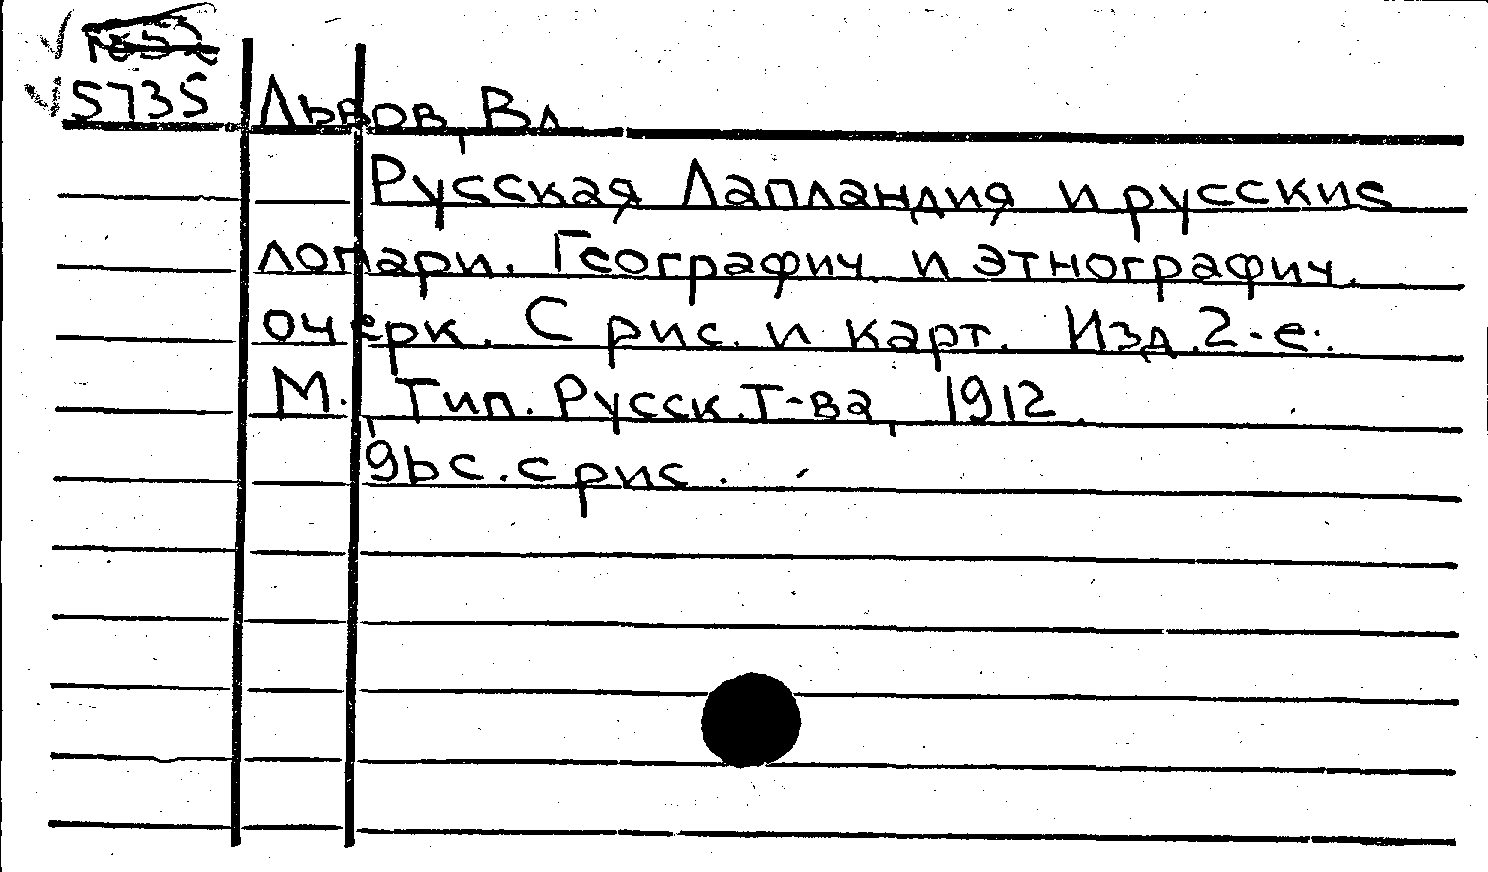 5735 Львов, Вл
Русская Лапландия и русские
лопари. Географич и этнографич.
очерк. С рис. и карт. Изд. 2-е.
М., Тип. Русск. Т-ва, 1912.
96 с. с рис.